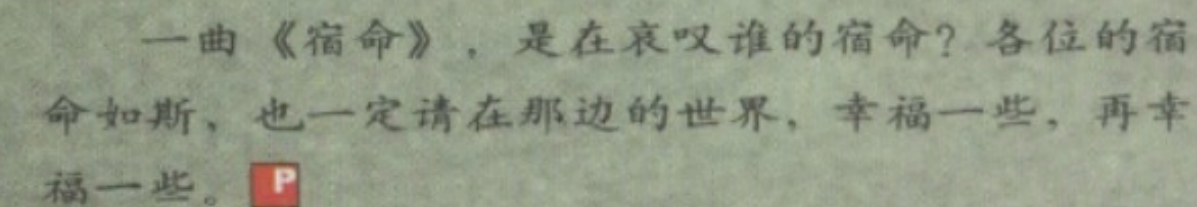 一曲《宿命》，是在哀叹谁的宿命？各位的宿
命如斯，也一定请在那边的世界，幸福一些，再幸
福一些。P